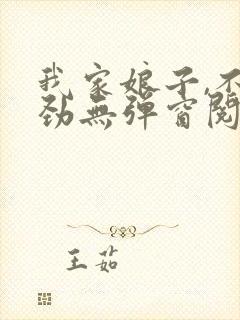 我家娘子,不
劲無弹窗閱
王茹